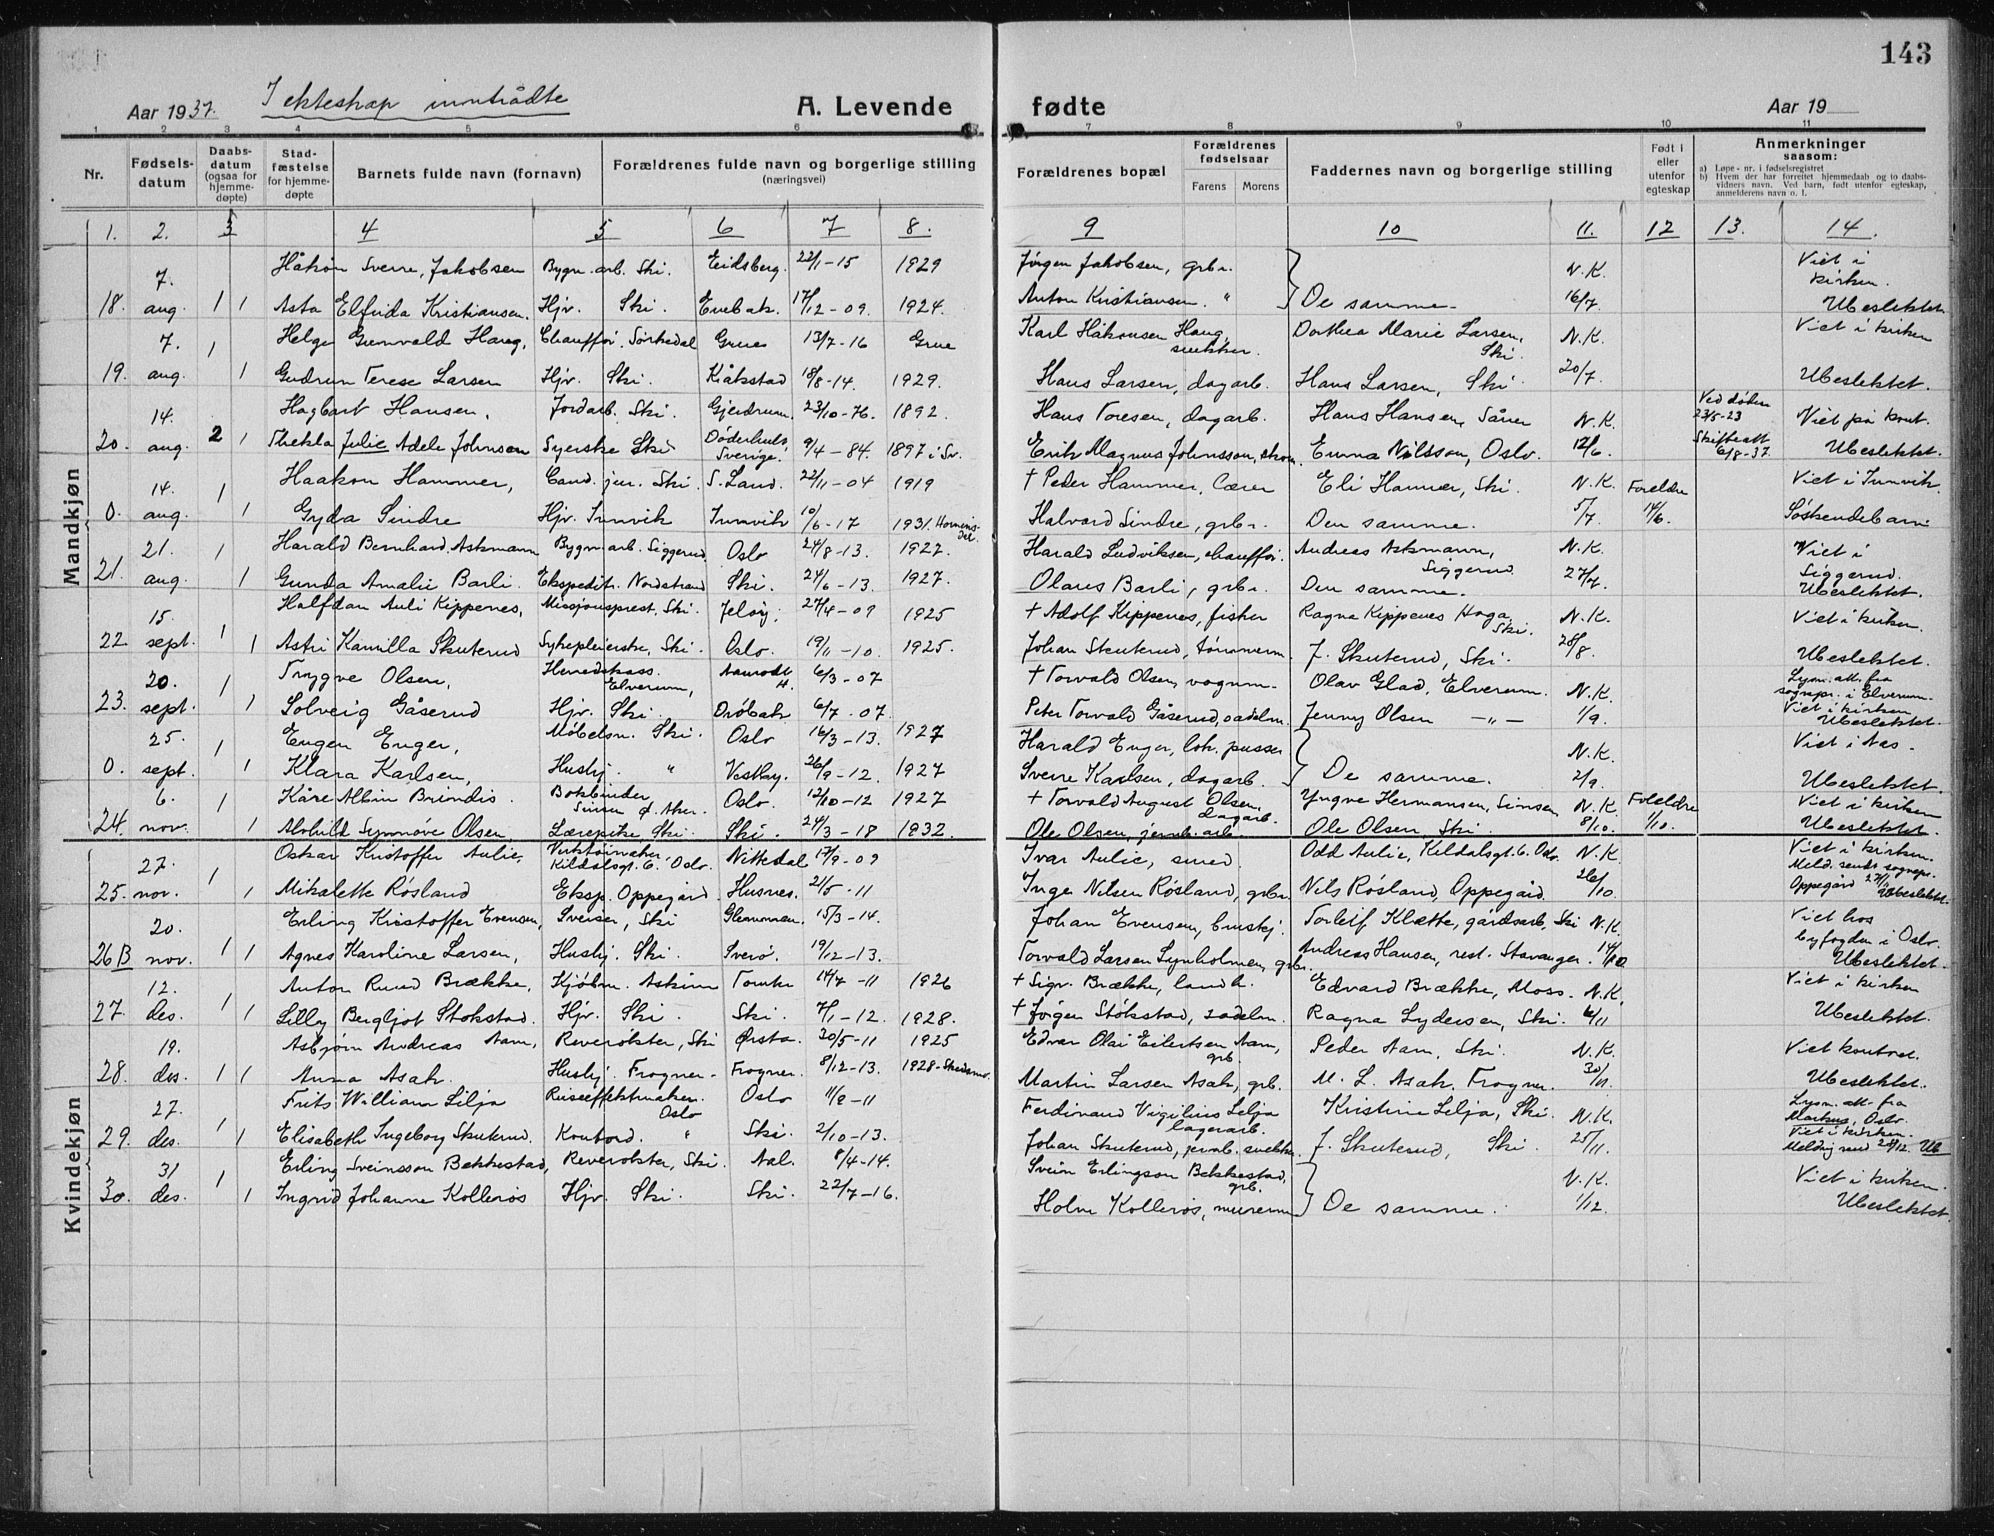 143
Aar 1937. I ekteskap inntrådte A. Levende fødte Aar 19
1 2 3 4 5 6 7 8 9 10 11
Nr. Fødsels-datum Daabs-datum (ogsaa for hjemme-døpte) Stad-fæstelse for hjemme-døpte Barnets fulde navn (fornavn) Forældrenes fulde navn og borgerlige stilling (næringsvei) Forældrenes bopæl Forældrenes fødselsaar Farens Morens Faddernes navn og borgerlige stilling Født i eller utenfor egteskap Anmerkninger saasom:
a) Løpe-nr. i fødselsregistret
b) Hvem der har forrettet hjemmedaab og to daabs-vidners navn. Ved barn, født utenfor egteskap, anmelderens navn o. l.
1. 2. 3 4 5 6 7 8. 9 10 11. 12 13. 14.
Mandkjøn
7. Håkon Sverre Jakobsen Bygn. arb. Ski. Eidsberg. 22/1-15 1929 Jørgen Jakobsen, grbr. N.K. Viet i kirken.
18. aug. 1 1 Asta Elfrida Kristiansen. Hjv. Ski. Enebak. 17/12-09. 1924. Anton Kristiansen. " De samme. 16/7. Ubeslektet.
7. 1 Helge Gunvald Haug, Chauffør, Sørkedal Grue 13/7-16 Grue Karl Håkonsen Haug, snekker. Dorthea Marie Larsen, Ski. N.K. Viet i kirken
19. aug. 1 Gudrun Terese Larsen Hjv. Ski. Kråkstad 18/8-14. 1929. Hans Larsen, dagarb. Hans Larsen, Ski 20/7. Ubeslektet.
14. Hagbart Hansen, Jordarb. Ski. Gjerdrum. 23/10-76. 1892. Hans Toresen, dagarb. Hans Hansen, Såner N.K. Ved døden 23/5-23 Viet på kont.
20. aug. 2 1 Thekla Julie Adele Johnsen Syerske Ski Döderhult Sverige. 9/4-84. 1897 i Sv. Erik Magnus Johnsson, skom. Emma Nilsson, Oslo. 12/6. Skifteatt 6/8-37. Ubeslektet.
14. 1 Haakon Hammer, Cand. jur. Ski. S. Land. 22/11-04 1919 † Peder Hammer, Lærer Eli Hammer, Ski. N.K. Foreldre Viet i Innvik.
0. aug. 1 Gyda Sindre Hjv. Innvik Innvik 10/6-17 1931. Hornindal. Halvard Sindre, grbr. Den samme. 5/7. 14/6. Søskendebarn
21. 1 Harald Bernhard Askmann Bygn. arb. Siggerud Oslo 24/8-13. 1927. Harald Ludviksen, chauffør. Andreas Askmann, Siggerud N.K. Viet i Siggerud.
21. aug. 1 Gunda Amalie Barli. Ekspeditr. Nordstrand Ski. 24/6-13. 1927. Olaves Barli, grbr. Den samme. 27/7. Ubeslektet.
15. 1 Halfdan Auli Kippenes, Missjonsprest. Ski. Jeløy. 27/4-09 1925 † Adolf Kippenes, fisker Ragna Kippenes Haga, Ski. N.K. Viet i kirken.
22 sept. 1 Astri Kamilla Skuterud Sykepleierske, Ski. Oslo. 19/11-10. 1925. Johan Skuterud, tømmerm. J. Skuterud, Ski. 28/8. Ubeslektet.
20. 1 Trygve Olsen, Herredskass. Elverum, Aamodt H. 6/3-07 † Torvald Olsen, vognm. Olav Glad, Elverum. N.K. Lysn. att. fra sognepr. i Elverum.
23. sept. 1 Solveig Gåserud Hjv. Ski. Drøbak 6/7-07. Peter Torvald Gåserud, sadelm. Jenny Olsen — " — 1/9. Viet i kirken Ubeslektet.
25. 1 Eugen Enger, Møbelsn. Ski. Oslo 16/3-13. 1927 Harald Enger, lok. pusser N.K. Viet i Aas.
0. sept. 1 Klara Karlsen, Hushj. " Vestby. 26/9-12. 1927 Sverre Karlsen, dagarb. De samme. 2/9. Ubeslektet.
6. 1 Kåre Albin Brindis. Bokbinder, Sinsen Ø. Aker. Oslo. 12/10-12 1927 † Torvald August Olsen, dagarb. Yngve Hermansen, Sinsen N.K. Foreldre Viet i kirken
24. nov. 1 Alvhild Synnøve Olsen Lærepike, Ski. Ski. 24/3-18 1932. Ole Olsen, jernb. arb. Ole Olsen, Ski. 8/10. 1/10. Ubeslektet.
Kvindekjøn
27. 1 Oskar Kristoffer Aulie, Verktøimaker, Kildalsgt. 6. Oslo. Nittedal 17/9-09 Ivar Aulie, smed. Odd Aulie, Kildalsgt. 6. Oslo. N.K. Viet i kirken. Meld. sendt sognepr.
25. nov. 1 Mikalette Røsland Eksp. Oppegård Husnes. 21/5-11 Inge Nilsen Røsland, grbr. Nils Røsland, Oppegård. 26/10. Oppegård Ubeslektet.
20. Erling Kristoffer Evensen, Sveiser, Ski Glemmen. 15/3-14. Johan Evensen, brushj. Torleif Klætte, gårdsarb., Ski N.K. Viet hos
26 B nov. 1 1 Agnes Karoline Larsen, Hushj. Ski. Sverø. 19/12-13. Torvald Larsen Lynholmen, grbr. Andreas Hansen, rest. Stavanger. 14/10 byfogden i Oslo. Ubeslektet.
12. 1 Anton Ruud Brække, Kjøbm. Askim Tomter 14/7-11 1926 † Sigv. Brække, landh. Edvard Brække, Moss. N.K. Viet i kirken
27. des. 1 Lilly Bergljot Stokstad. Hjv. Ski. Ski. 7/1-12. 1928. † Jørgen Stokstad, sadelm. Ragna Lydersen, Ski. 6/11 Ubeslektet.
19. Asbjørn Andreas Aam, Reverøkter, Ski Ørsta. 30/5-11 1925 Edvar Olai Eilertsen Aam, grb. Peder Aam, Ski. N.K. Viet kontoret.
28. des. 1 1 Anna Asak. Hushj. Frogner. Frogner. 8/12-13. 1928-Skedsmo. Martin Larsen Asak, grb. M. L. Asak. Frogner. 30/11. Ubeslektet.
27. 1 Frits William Lilja Oslo Oslo 11/2-11 Ferdinand Vigilius Lilja lagerarb. Kristine Lilja, Ski. N.K. Lysn. att. fra Markus, Oslo.
29. des. 1 Elisabeth Ingeborg Skuterud. Kontord. " Ski. 2/10-13. Johan Skuterud, jernb. snekker J. Skuterud, Ski 25/11. Viet i kirken. Melding send 28/12. Ub
31 1 Erling Sveinsson Bekkestad, Reverøkter, Ski. Aal. 8/4-14. Svein Erlingson Bekkestad, grb. N.K. Viet i kirken.
30. des. 1 Ingrid Johanne Kollerøs Hjv. Ski. Ski. 22/7-16. Holm Kollerøs, murerm. De samme. 1/12. Ubeslektet.